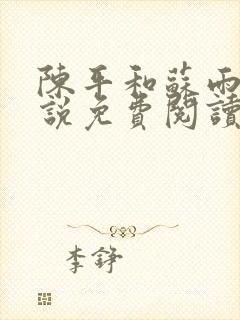 陳平和蘇雨
說免費閱讀
李錚